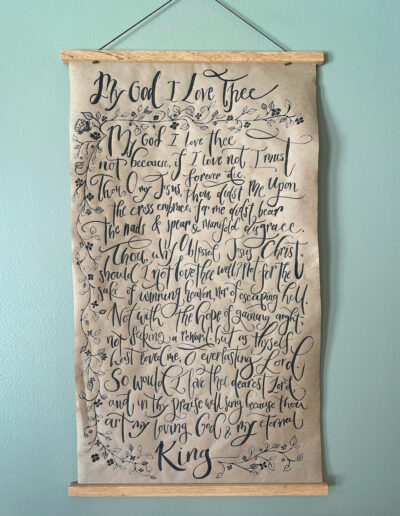 My God I Love Thee
My God I love thee
not because, if I love not I must
forever die.
Thou, O my Jesus, thou didst me upon
the cross embrace, for me didst bear
the nails & spear & manifold disgrace.
Thou, why, O Blessed Jesus Christ
should I not love thee well? Not for the
sake of winning heaven, nor of escaping hell.
Not with the hope of gaining aught,
not seeking a reward but as thyself
hast loved me, O everlasting Lord,
So would I love thee dearest Lord
and in thy praise will sing because thou
art my loving God & my eternal
King